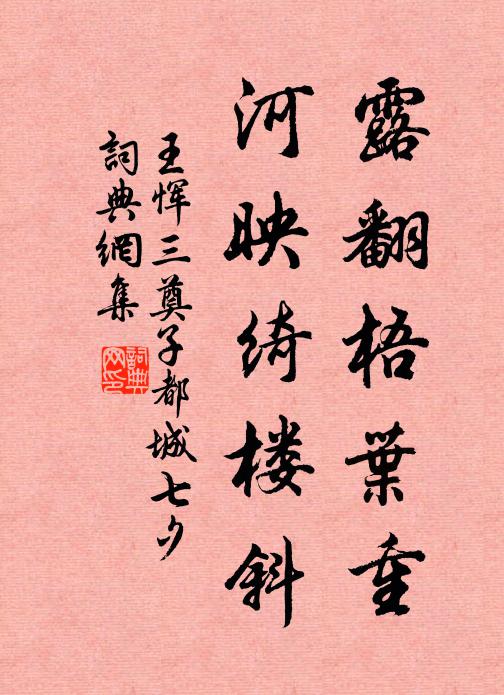 露翻梧葉重
河映绮楼斜
王恽三奠子都城七夕
詞典網集
詞典
网印